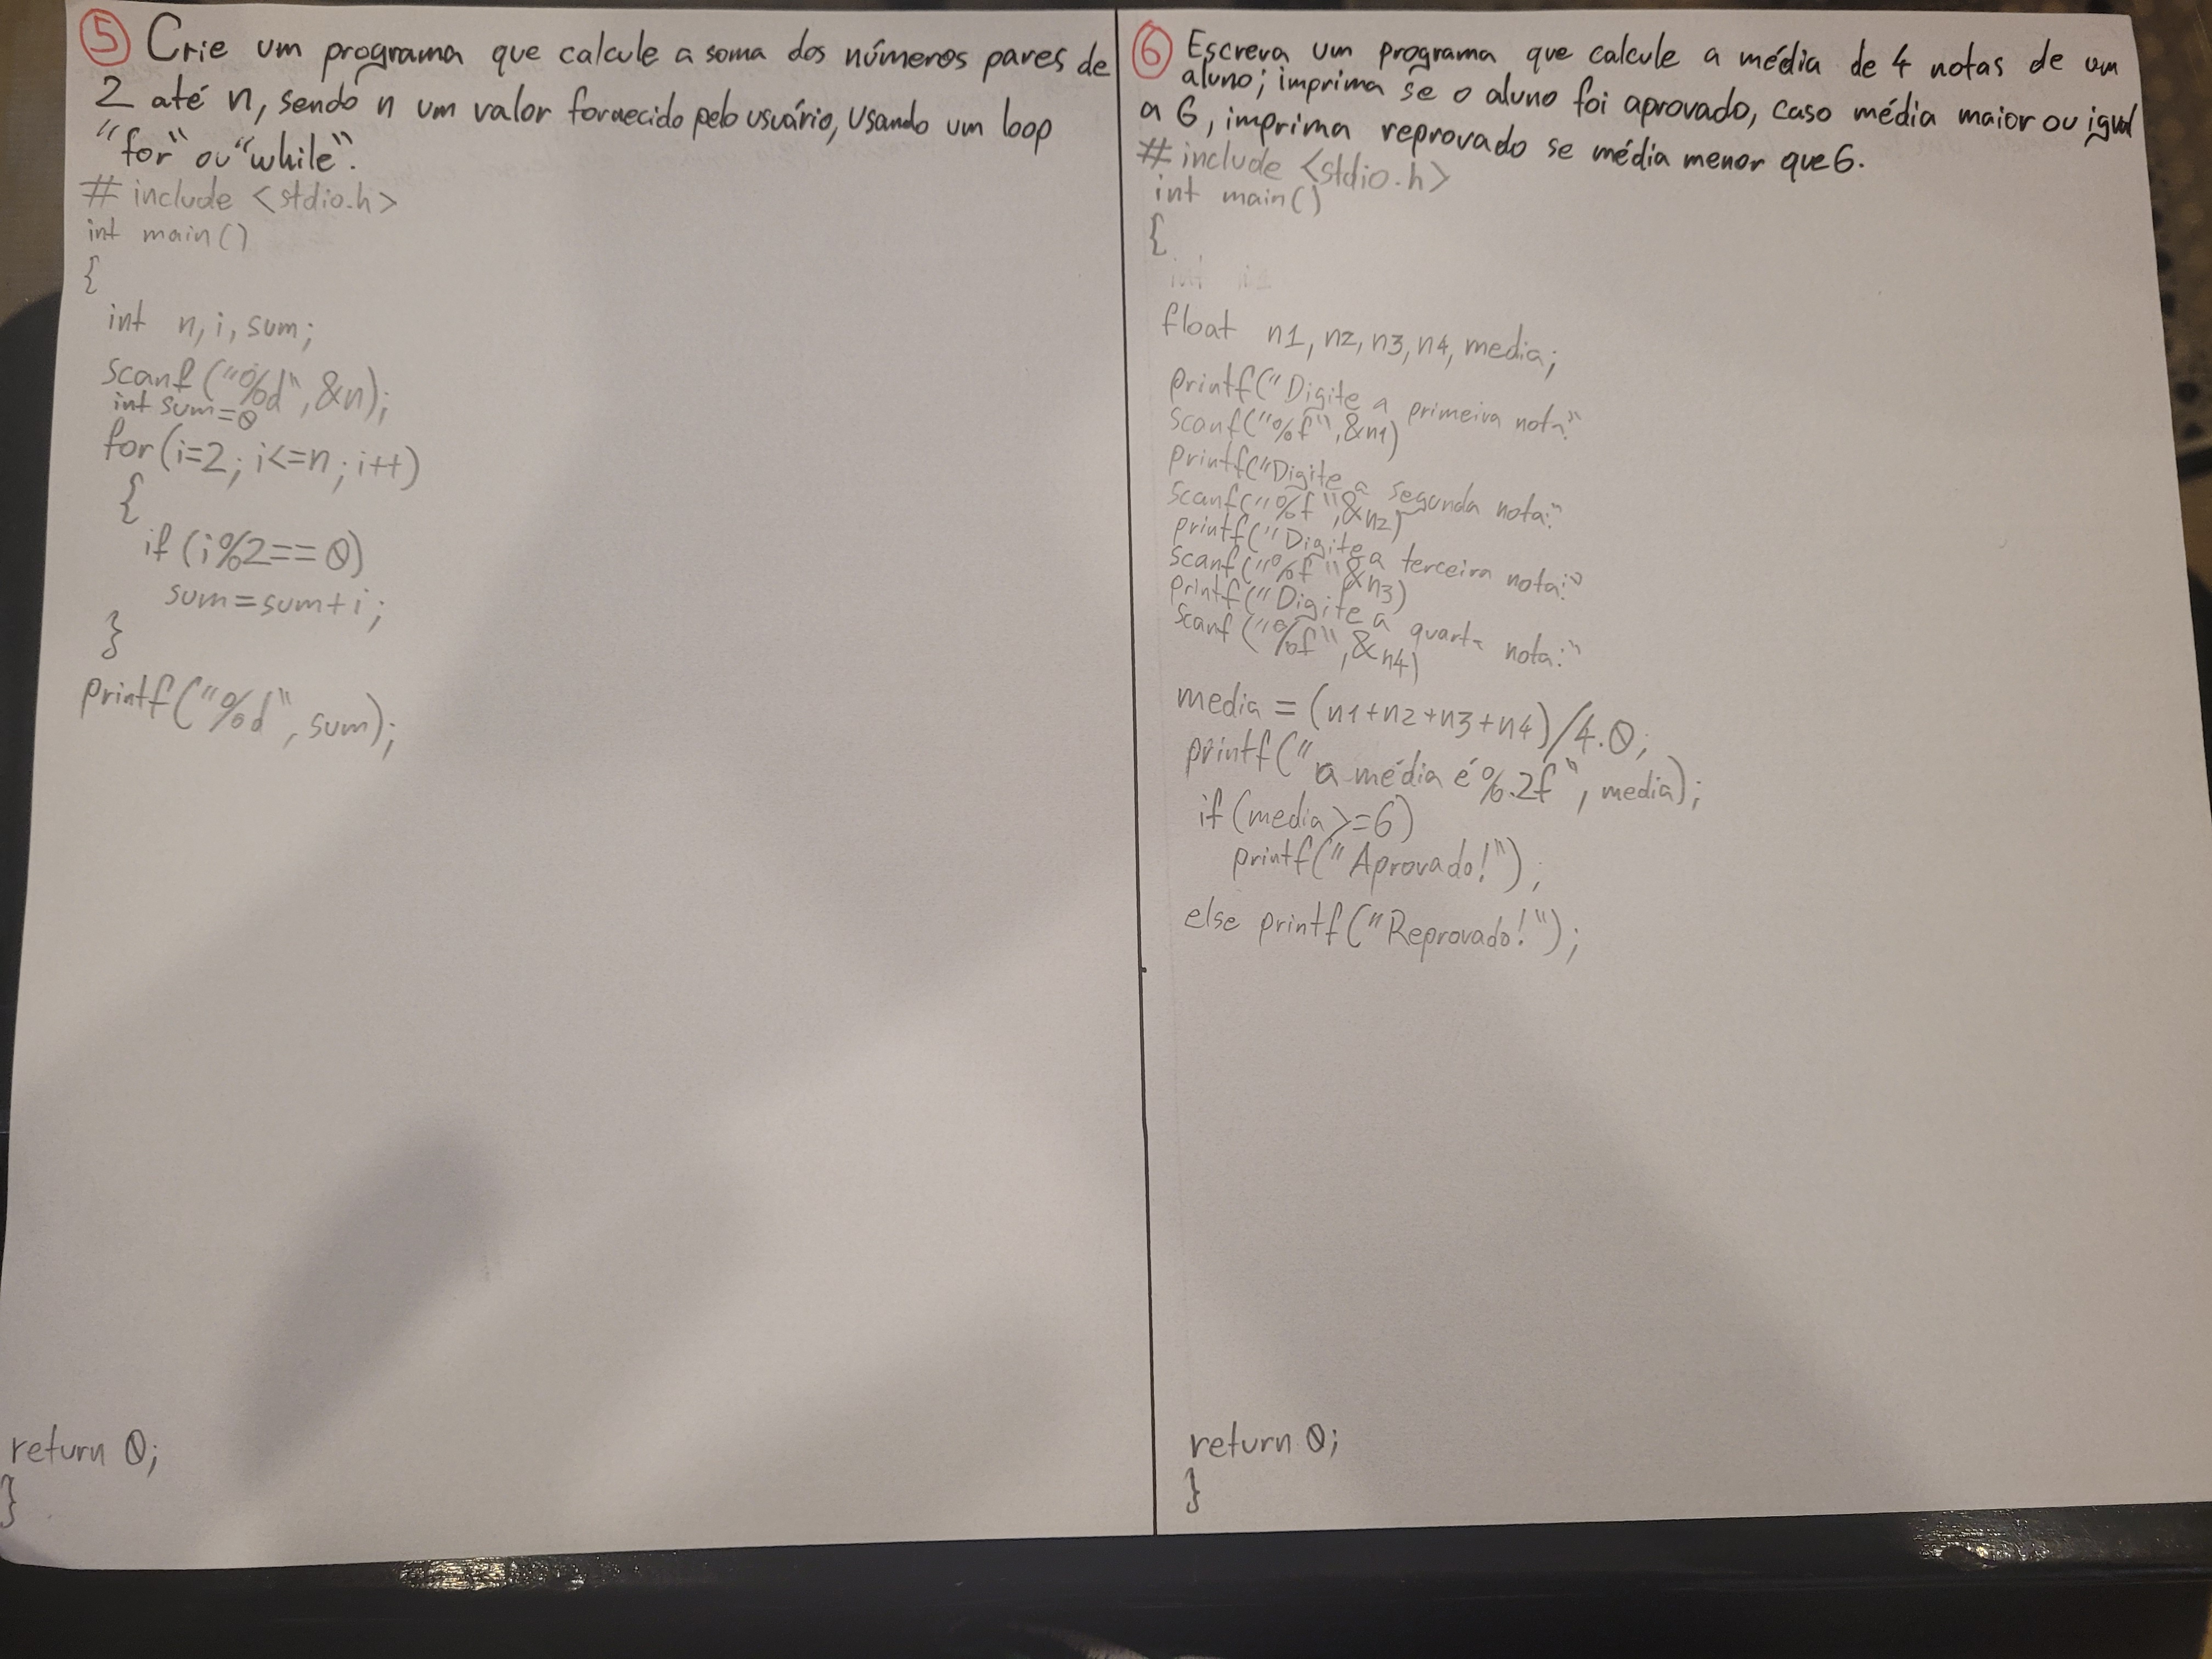 ⑤ Crie um programa que calcule a soma dos números pares de
2 até n, sendo n um valor fornecido pelo usuário, usando um loop
"for" ou "while".
#include <stdio.h>
int main()
{
int n, i, sum;
scanf("%d", &n);
int sum=0
for(i=2; i<=n; i++)
{
if(i%2==0)
sum=sum+i;
}
printf("%d", sum);
return 0;
}
⑥ Escreva um programa que calcule a média de 4 notas de um
aluno; imprima se o aluno foi aprovado, caso média maior ou igual
a 6, imprima reprovado se média menor que 6.
#include <stdio.h>
int main()
{
float n1, n2, n3, n4, media;
printf("Digite a primeira nota"
scanf("%f", &n1)
printf("Digite a segunda nota:"
scanf("%f", &n2)
printf("Digite a terceira nota:"
scanf("%f", &n3)
printf("Digite a quarta nota:"
scanf("%f", &n4)
media = (n1+n2+n3+n4)/4.0;
printf(" a média é %.2f", media);
if(media>=6)
printf("Aprovado!");
else printf("Reprovado!");
return 0;
}